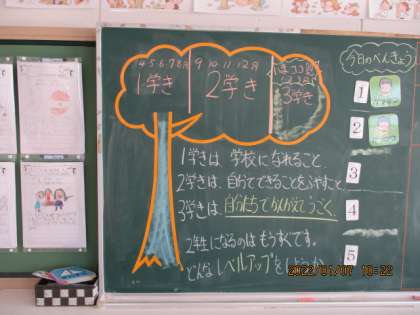 4.5.6.7.8月 9 10.11.12月
1学き
2学き
3学き
今日のべんきょう
1
2
3
4
5
1学きは 学校になれること
2学きは、自分でできることをふやすこと
3学きは、自分たちでかんがえてうごく。
2年生になるのは もうすぐです。
どんなレベルアップを
2022/01/07 10:22